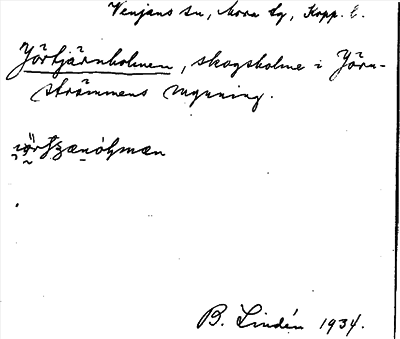 Venjans sn, Mora tg, Kopp. l.
Jörtjärnholmen, skogsholme i Jörn-
strömmens mynning.
B. Lindén 1934.